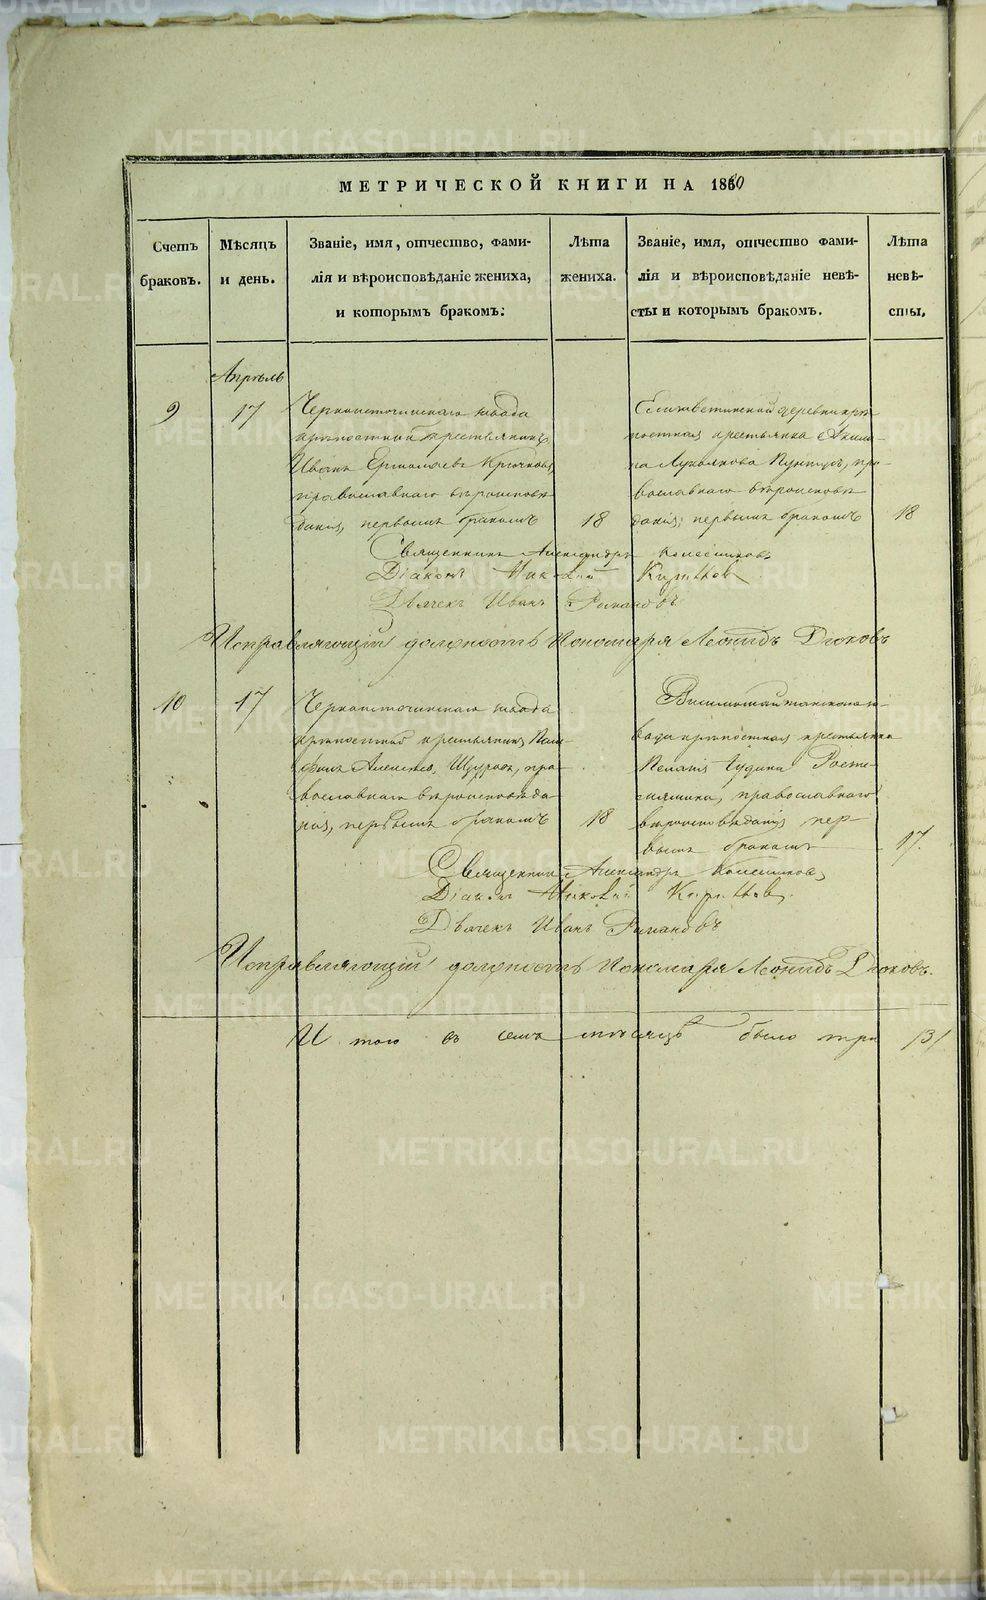 МЕТРИЧЕСКОЙ КНИГИ НА 1860
Счетъ
браковъ.
Мѣсяцъ
и день.
Званіе, имя, отчество, фами-
лія и вѣроисповѣданіе жениха,
и которымъ бракомъ:
Лѣта
жениха.
Званіе, имя, отчество фами-
лія и вѣроисповѣданіе невѣ-
сты и которымъ бракомъ.
Лѣта
невѣ-
сты.
Апрѣль
9
17
Черноисточинскаго завода
крѣпостный крестьянинъ
Иванъ Ермолаевъ Крючковъ,
православнаго вѣроисповѣ
данія, первымъ бракомъ
18
Елизаветинской деревни крѣ
постная крестьянка
Лукоянова, пра-
вославнаго вѣроисповѣ
данія; первымъ бракомъ
18
Священникъ Александръ Колесниковъ
Діаконъ Николай
Дьячекъ Иванъ Романовъ
Исправляющій должность Пономаря Леонидъ Дюковъ
10
17
Черноисточинскаго завода
крѣпостной крестьянинъ
Алексѣевъ, пра
вославнаго вѣроисповѣда
нія, первымъ бракомъ
18
Висимошайтанскаго за
вода крѣпостная крестьянка
Пелагія
православнаго
вѣроисповѣданія, пер
вымъ бракомъ
17.
Священникъ Александръ Колесниковъ
Діаконъ Николай
Дьячекъ Иванъ Романовъ
Исправляющій должность Пономаря Леонидъ Дюковъ.
И того въ семъ мѣсяцѣ было три /3/
METRIKI.GASO-URAL.RU